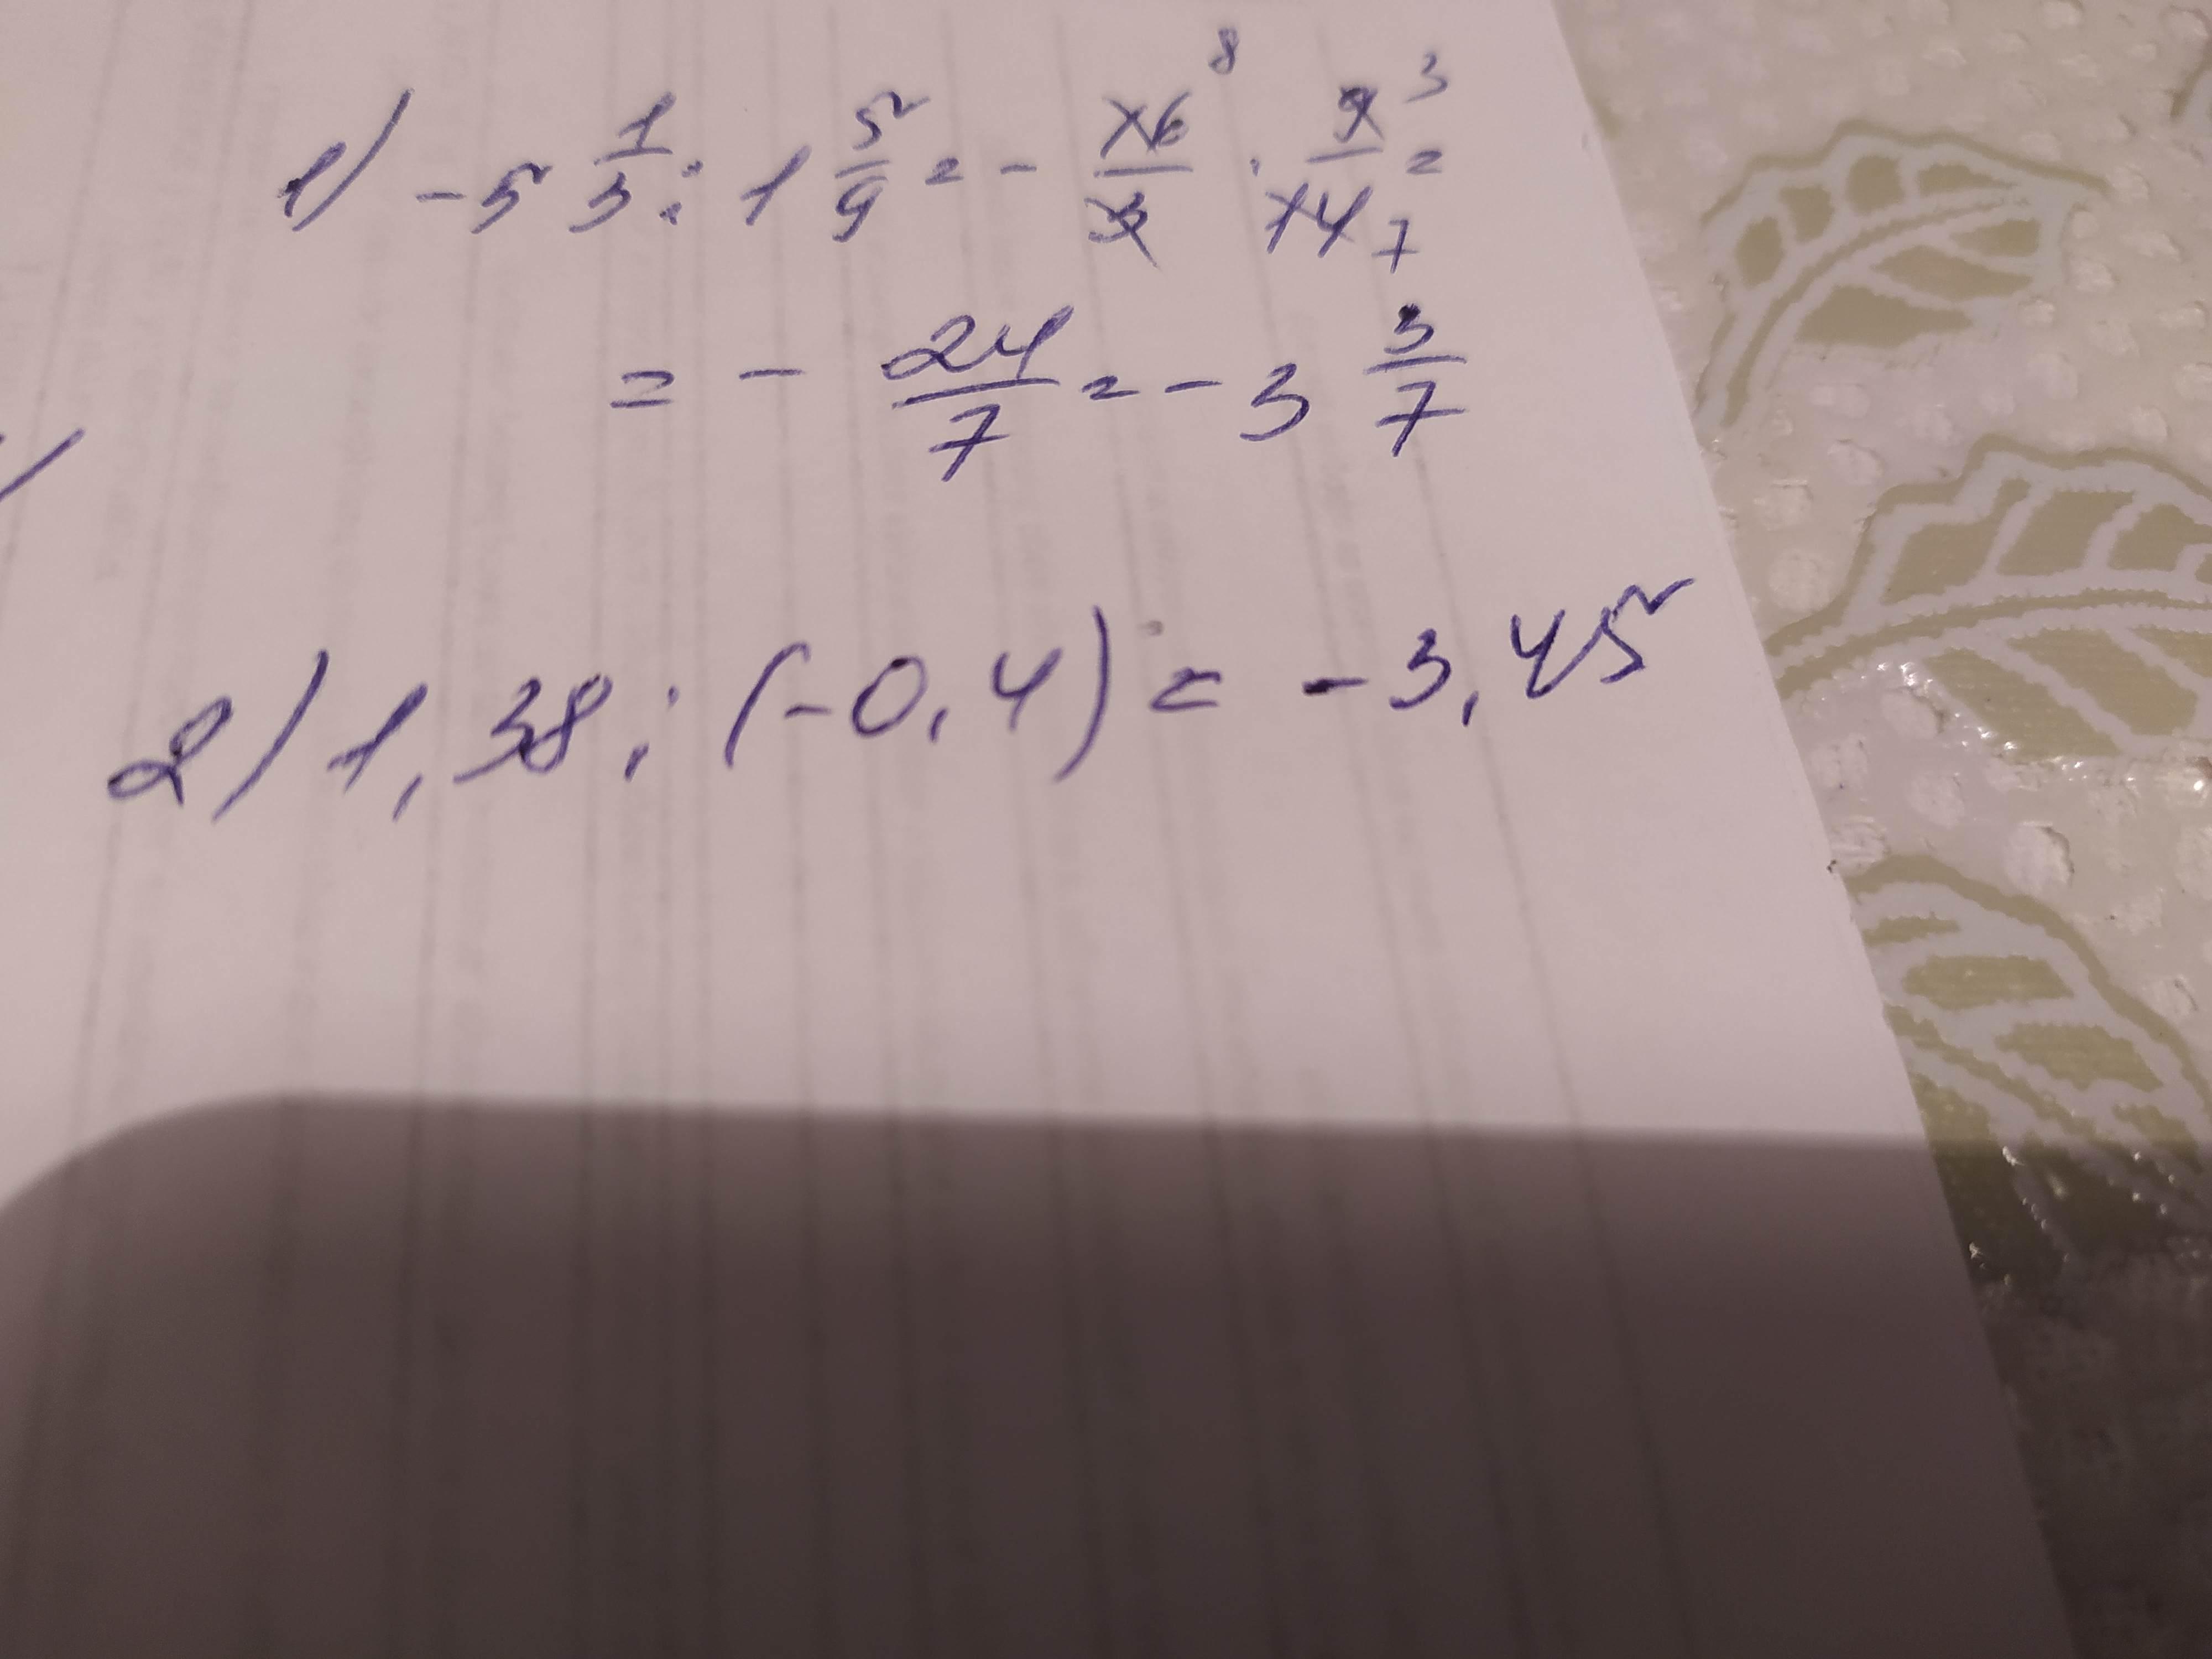 1) -5 1/3 : 1 5/9 = - 16/3 8 · 9/14 3 7 =
= - 24/7 = - 3 3/7
2) 1,38 : (-0,4) = -3,45